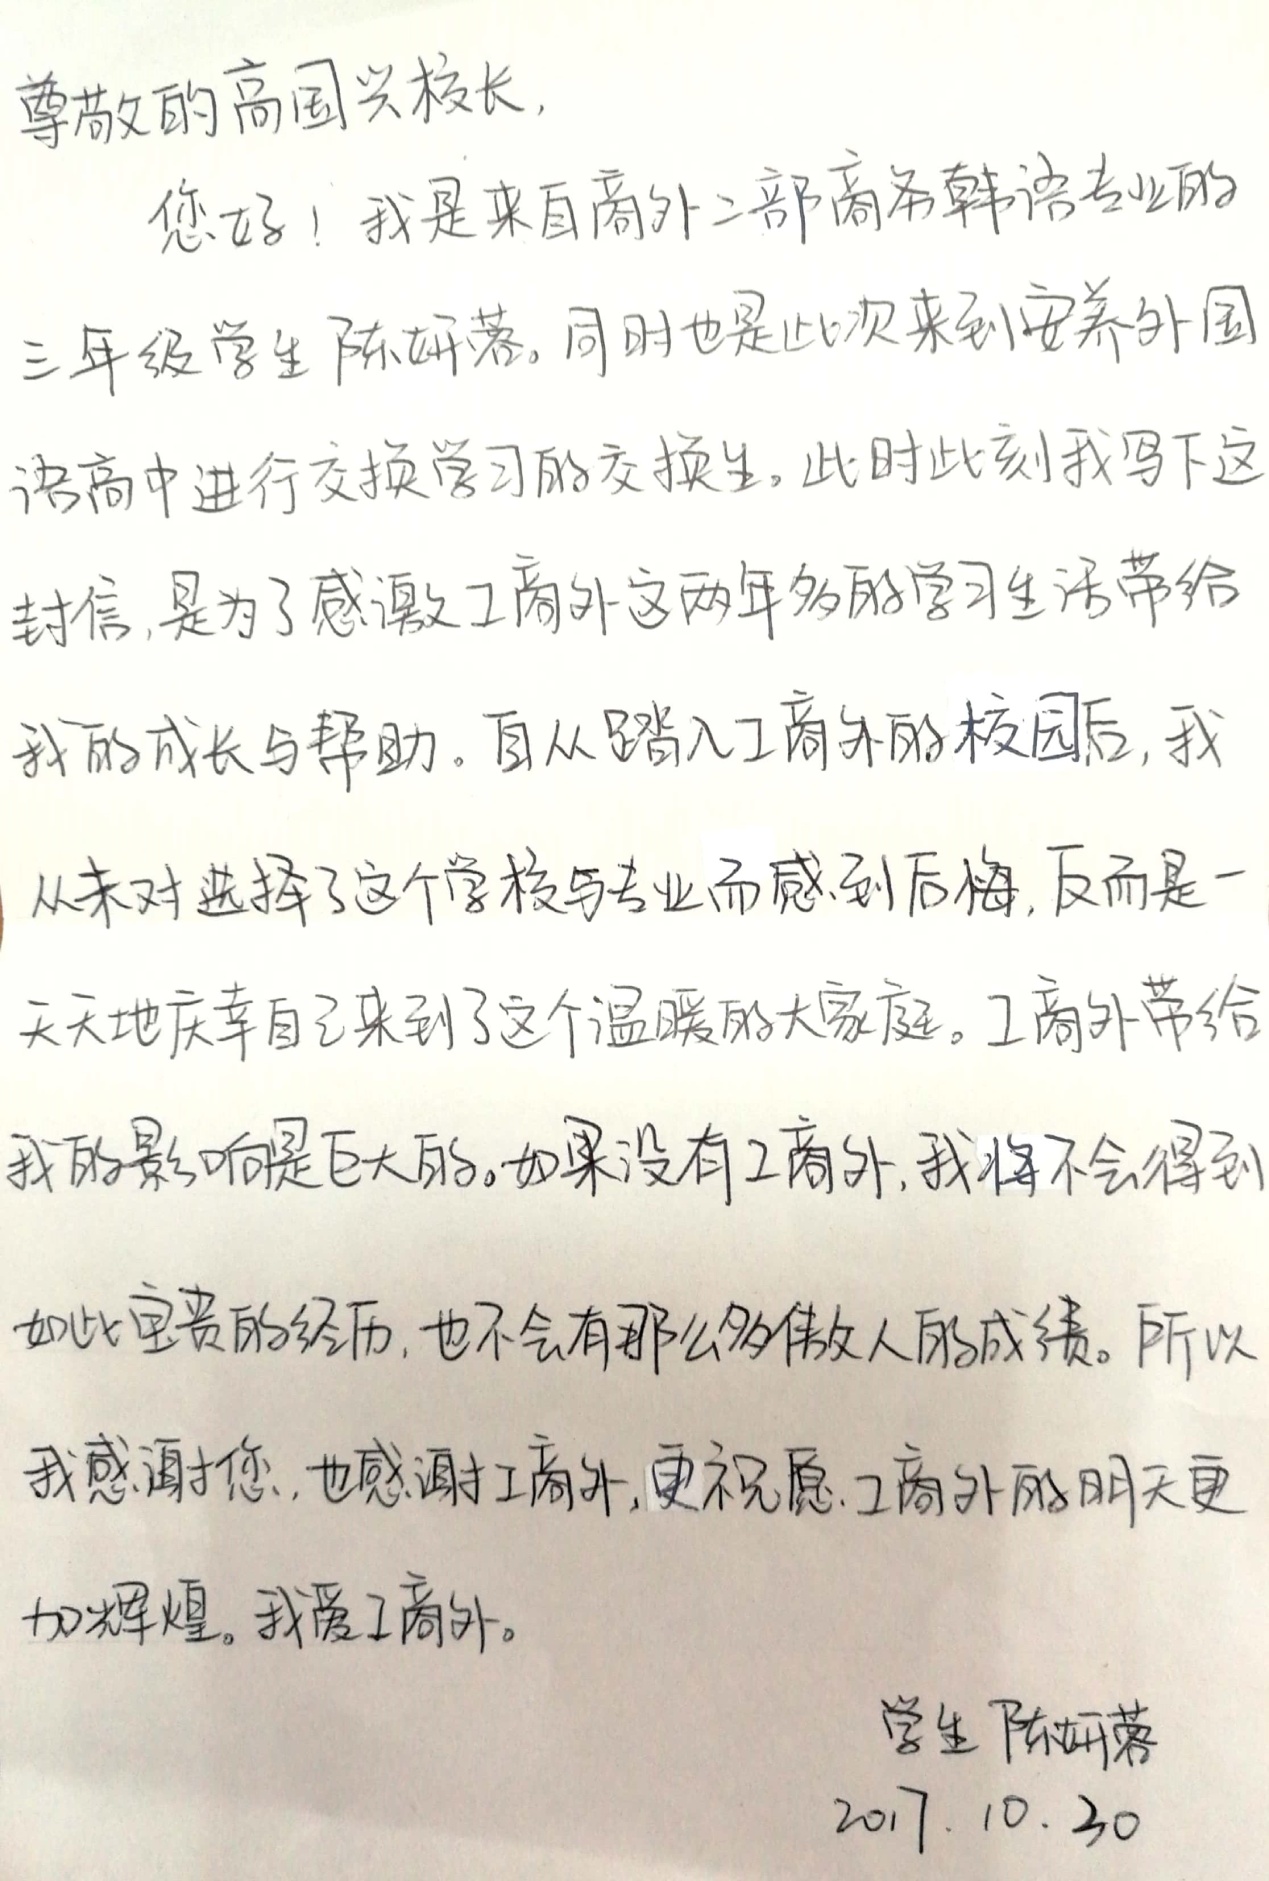 尊敬的高国兴校长，
您好！我是来自商外二部商务韩语专业的
三年级学生陈妍蓉。同时也是此次来到安养外国
语高中进行交换学习的交换生。此时此刻我写下这
封信，是为了感激工商外这两年多的学习生活带给
我的成长与帮助。自从踏入工商外的校园后，我
从未对选择了这个学校与专业而感到后悔，反而是一
天天地庆幸自己来到了这个温暖的大家庭。工商外带给
我的影响是巨大的。如果没有工商外，我将不会得到
如此宝贵的经历，也不会有那么多傲人的成绩。所以
我感谢您，也感谢工商外，更祝愿工商外的明天更
加辉煌。我爱工商外。
学生 陈妍蓉
2017.10.30